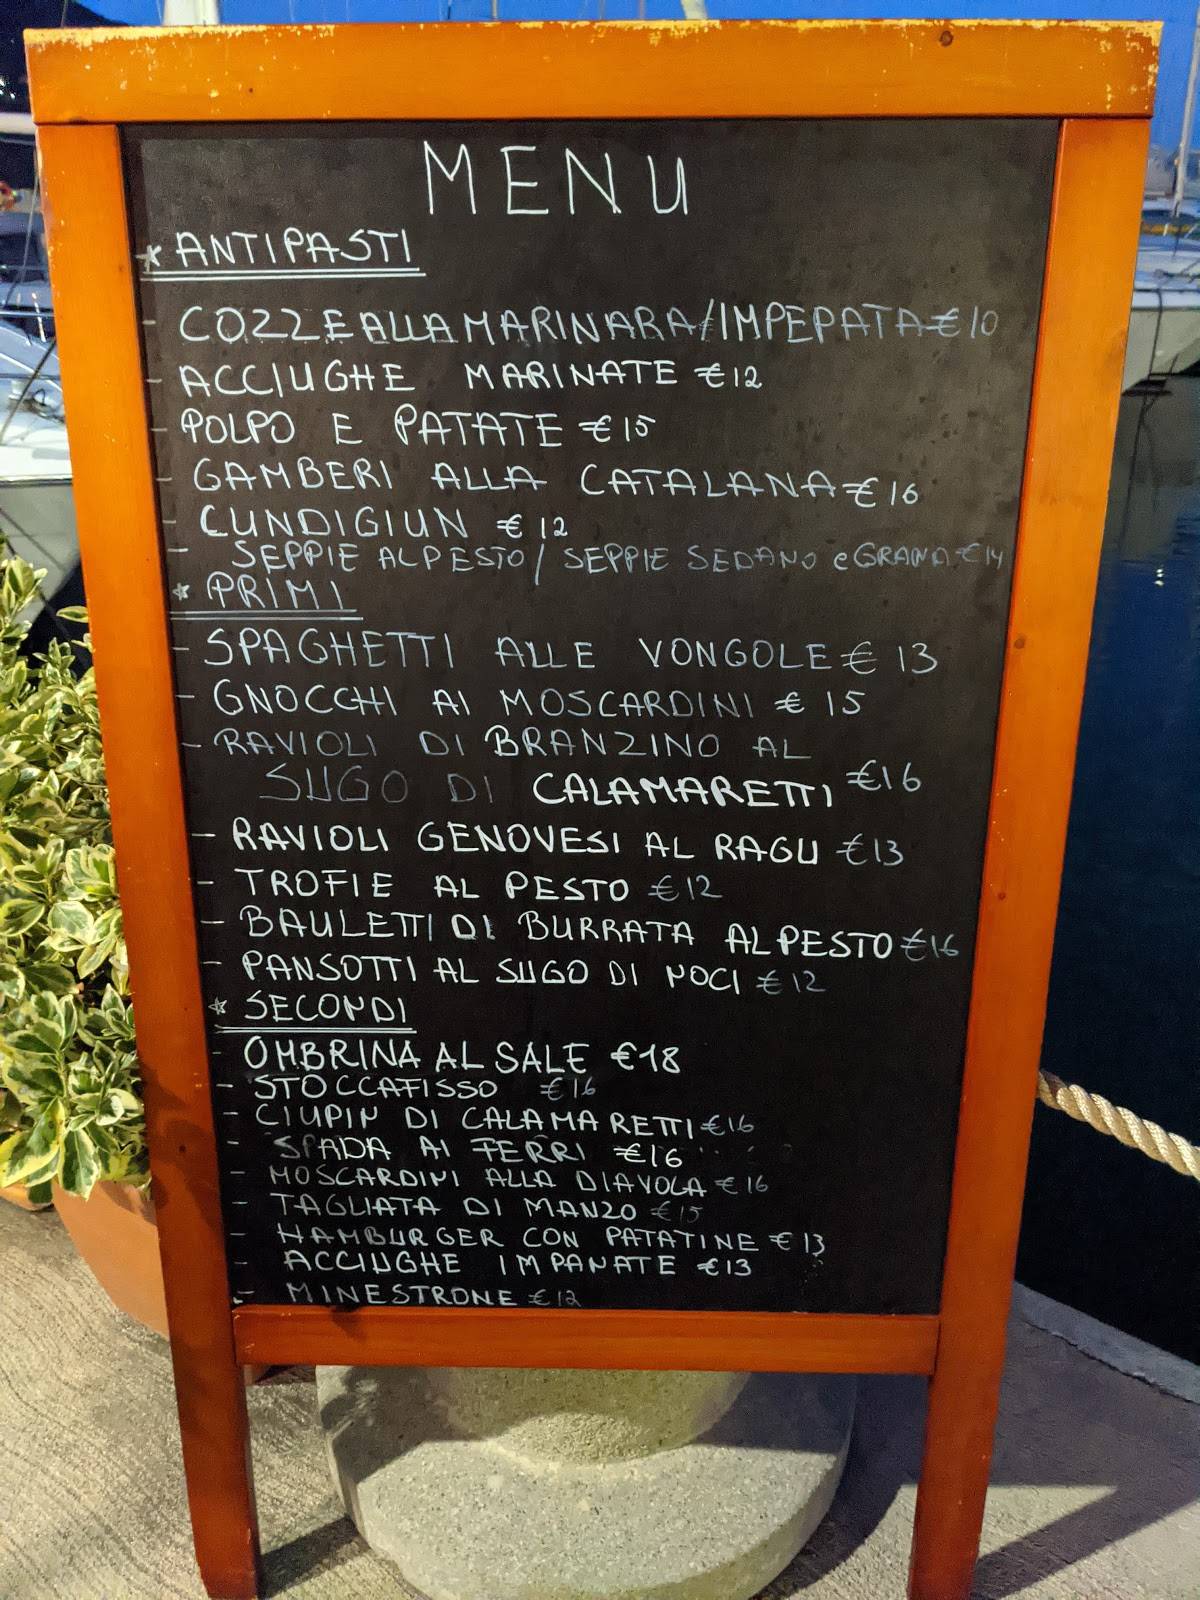 MENU
* ANTIPASTI
- COZZE ALLA MARINARA/IMPEPATA €10
- ACCIUGHE MARINATE €12
- POLPO E PATATE €15
- GAMBERI ALLA CATALANA €16
- CUNDIGIUN €12
- SEPPIE AL PESTO / SEPPIE SEDANO e GRANA €14
* PRIMI
- SPAGHETTI ALLE VONGOLE € 13
- GNOCCHI AI MOSCARDINI € 15
- RAVIOLI DI BRANZINO AL
SUGO DI CALAMARETTI €16
- RAVIOLI GENOVESI AL RAGU €13
- TROFIE AL PESTO €12
- BAULETTI DI BURRATA AL PESTO €16
- PANSOTTI AL SUGO DI NOCI €12
* SECONDI
- OMBRINA AL SALE €18
- STOCCAFISSO €16
- CIUPIN DI CALAMARETTI €16
- SPADA AI FERRI €16
- MOSCARDINI ALLA DIAVOLA €16
- TAGLIATA DI MANZO €15
- HAMBURGER CON PATATINE €13
- ACCIUGHE IMPANATE €13
- MINESTRONE €12